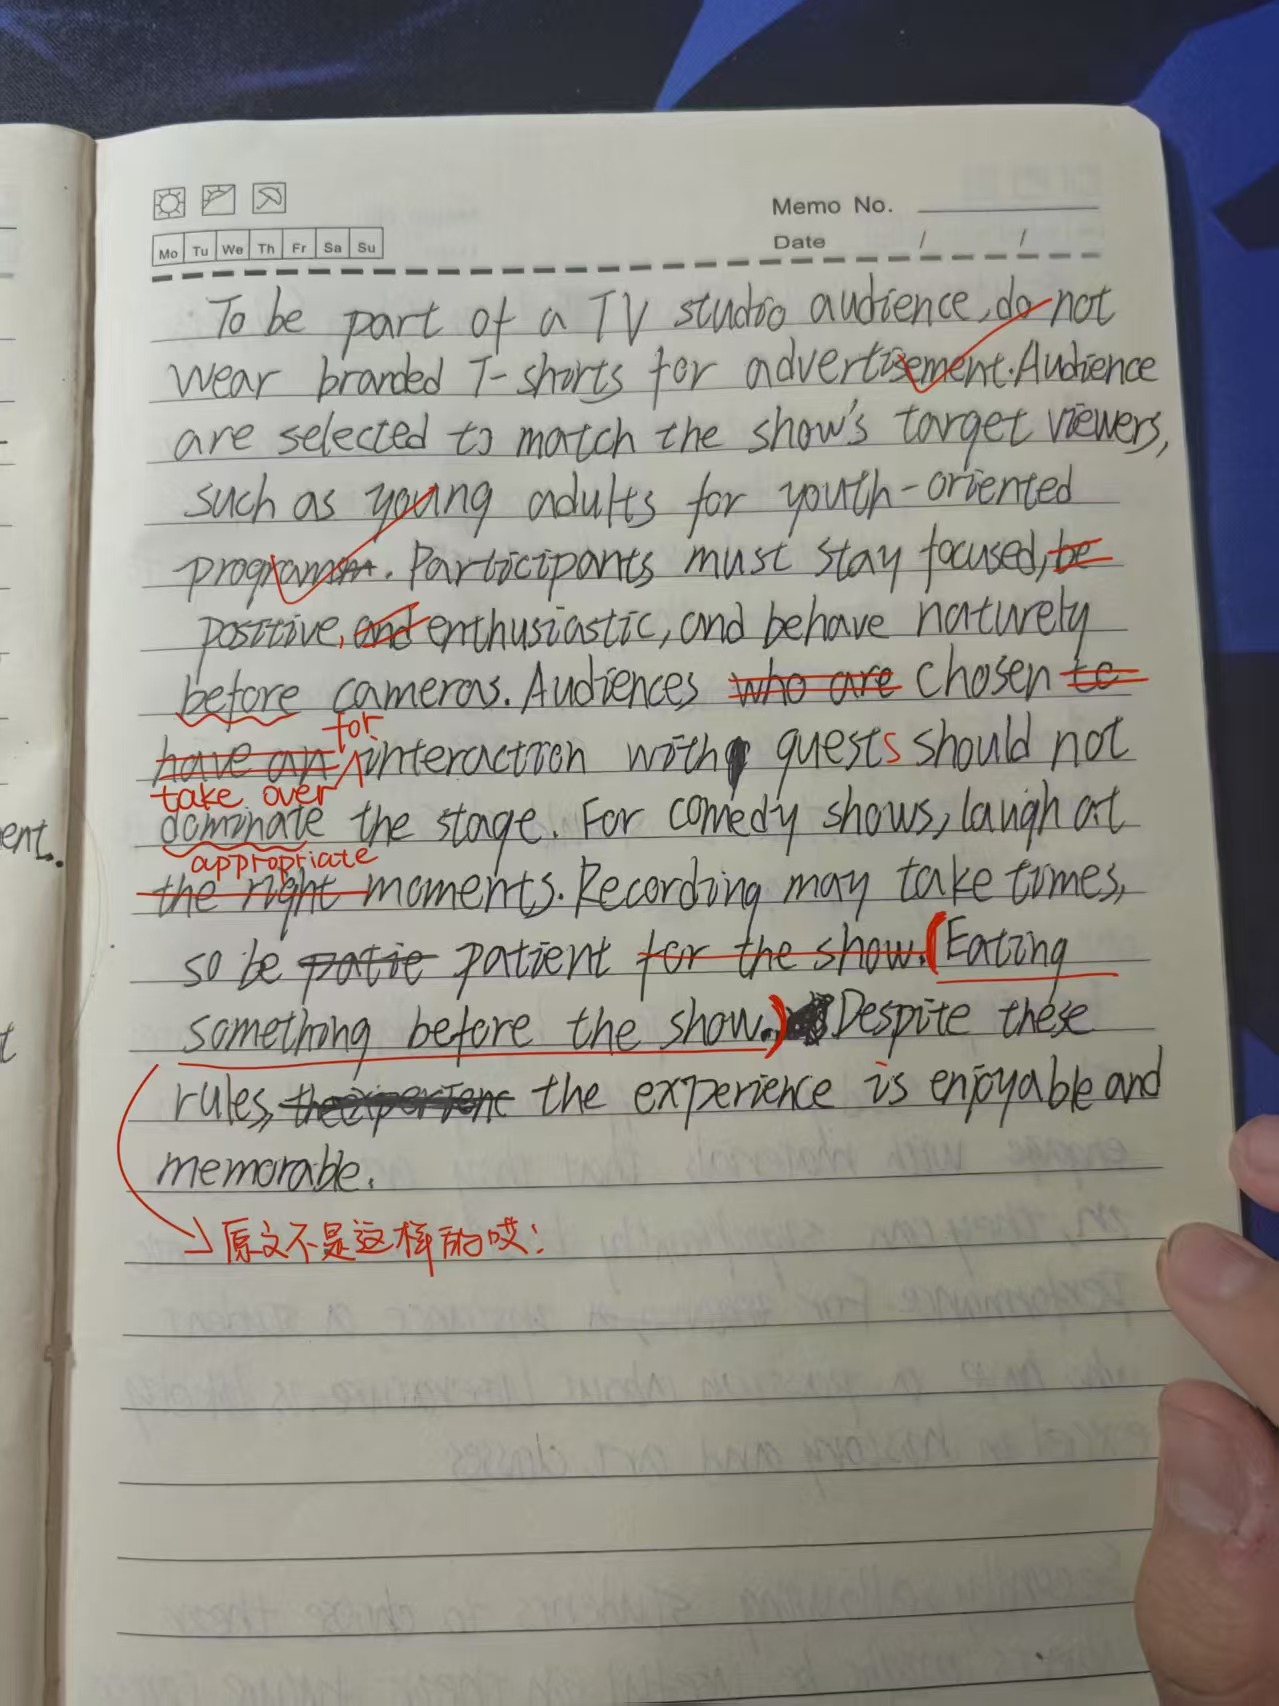 Memo No.
Mo Tu We Th Fr Sa Su
Date / /
To be part of a TV studio audience, do not
wear branded T-shorts for advertisement. Audience
are selected to match the show's target viewers,
such as young adults for youth-oriented
program. Participants must stay focused, be
positive, and enthusiastic, and behave naturely
before cameras. Audiences who are chosen to
for
have an interaction with guests should not
take over
dominate the stage. For comedy shows, laugh at
appropriate
the right moments. Recording may take times,
so be patie patient for the show. (Eating
something before the show.) Despite these
rules, the experienc the experience is enjoyable and
memorable.
→ 原文不是这样的哎!
ent.
t